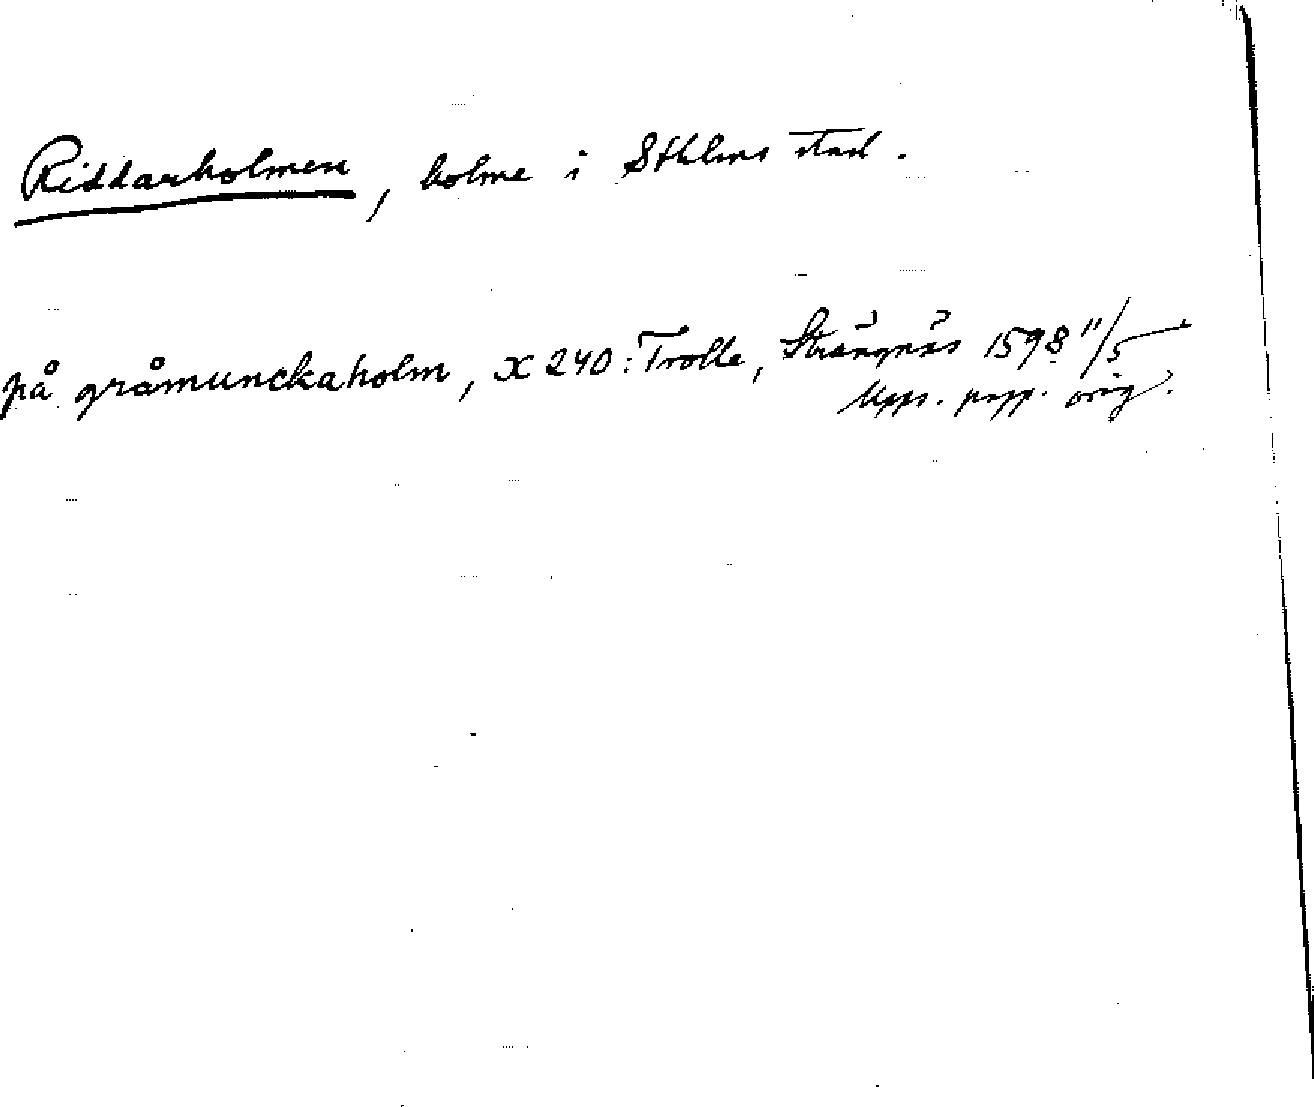 Riddarholmen, holme i Sthlms stad.
på gråmunckaholm, X 240: Trolle, Strängnäs 1598 11/5
Upps. papp. orig.